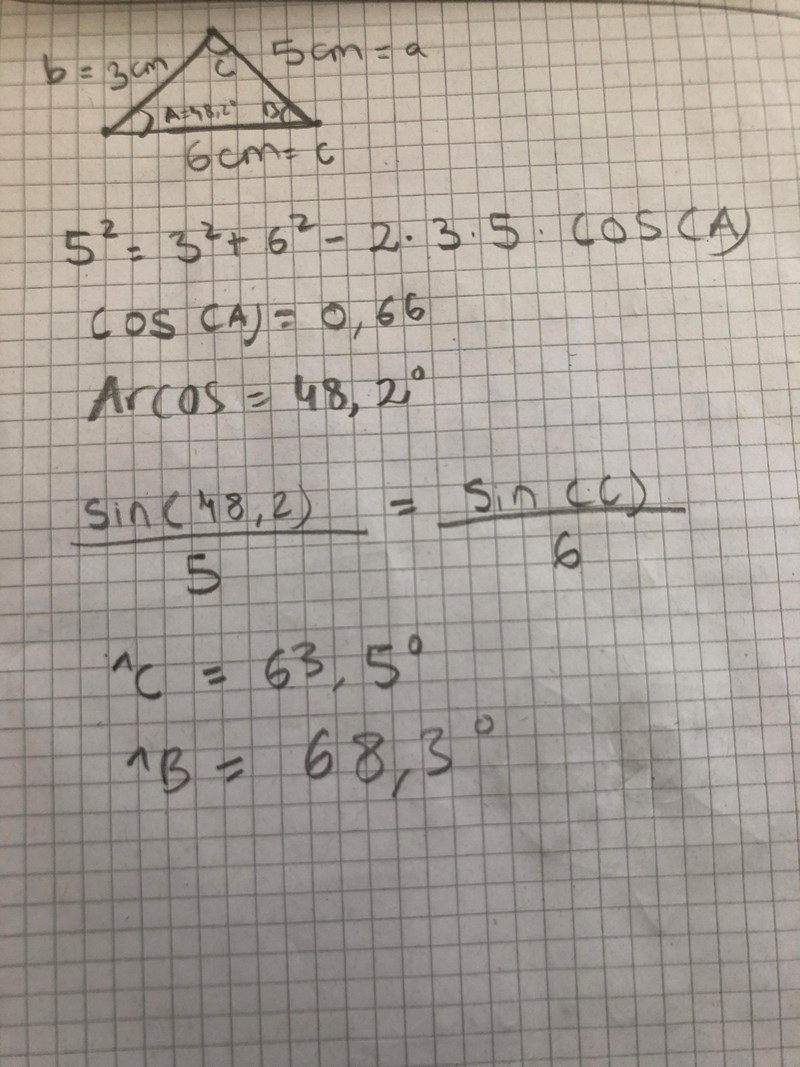 b = 3cm
5cm = a
C
A=48,2°
B
6cm = c
5² = 3² + 6² - 2 · 3 · 5 · cos(A)
cos(A) = 0,66
Arcos = 48,2°
sin(48,2) = sin(C)
5 6
^C = 63,5°
^B = 68,3°